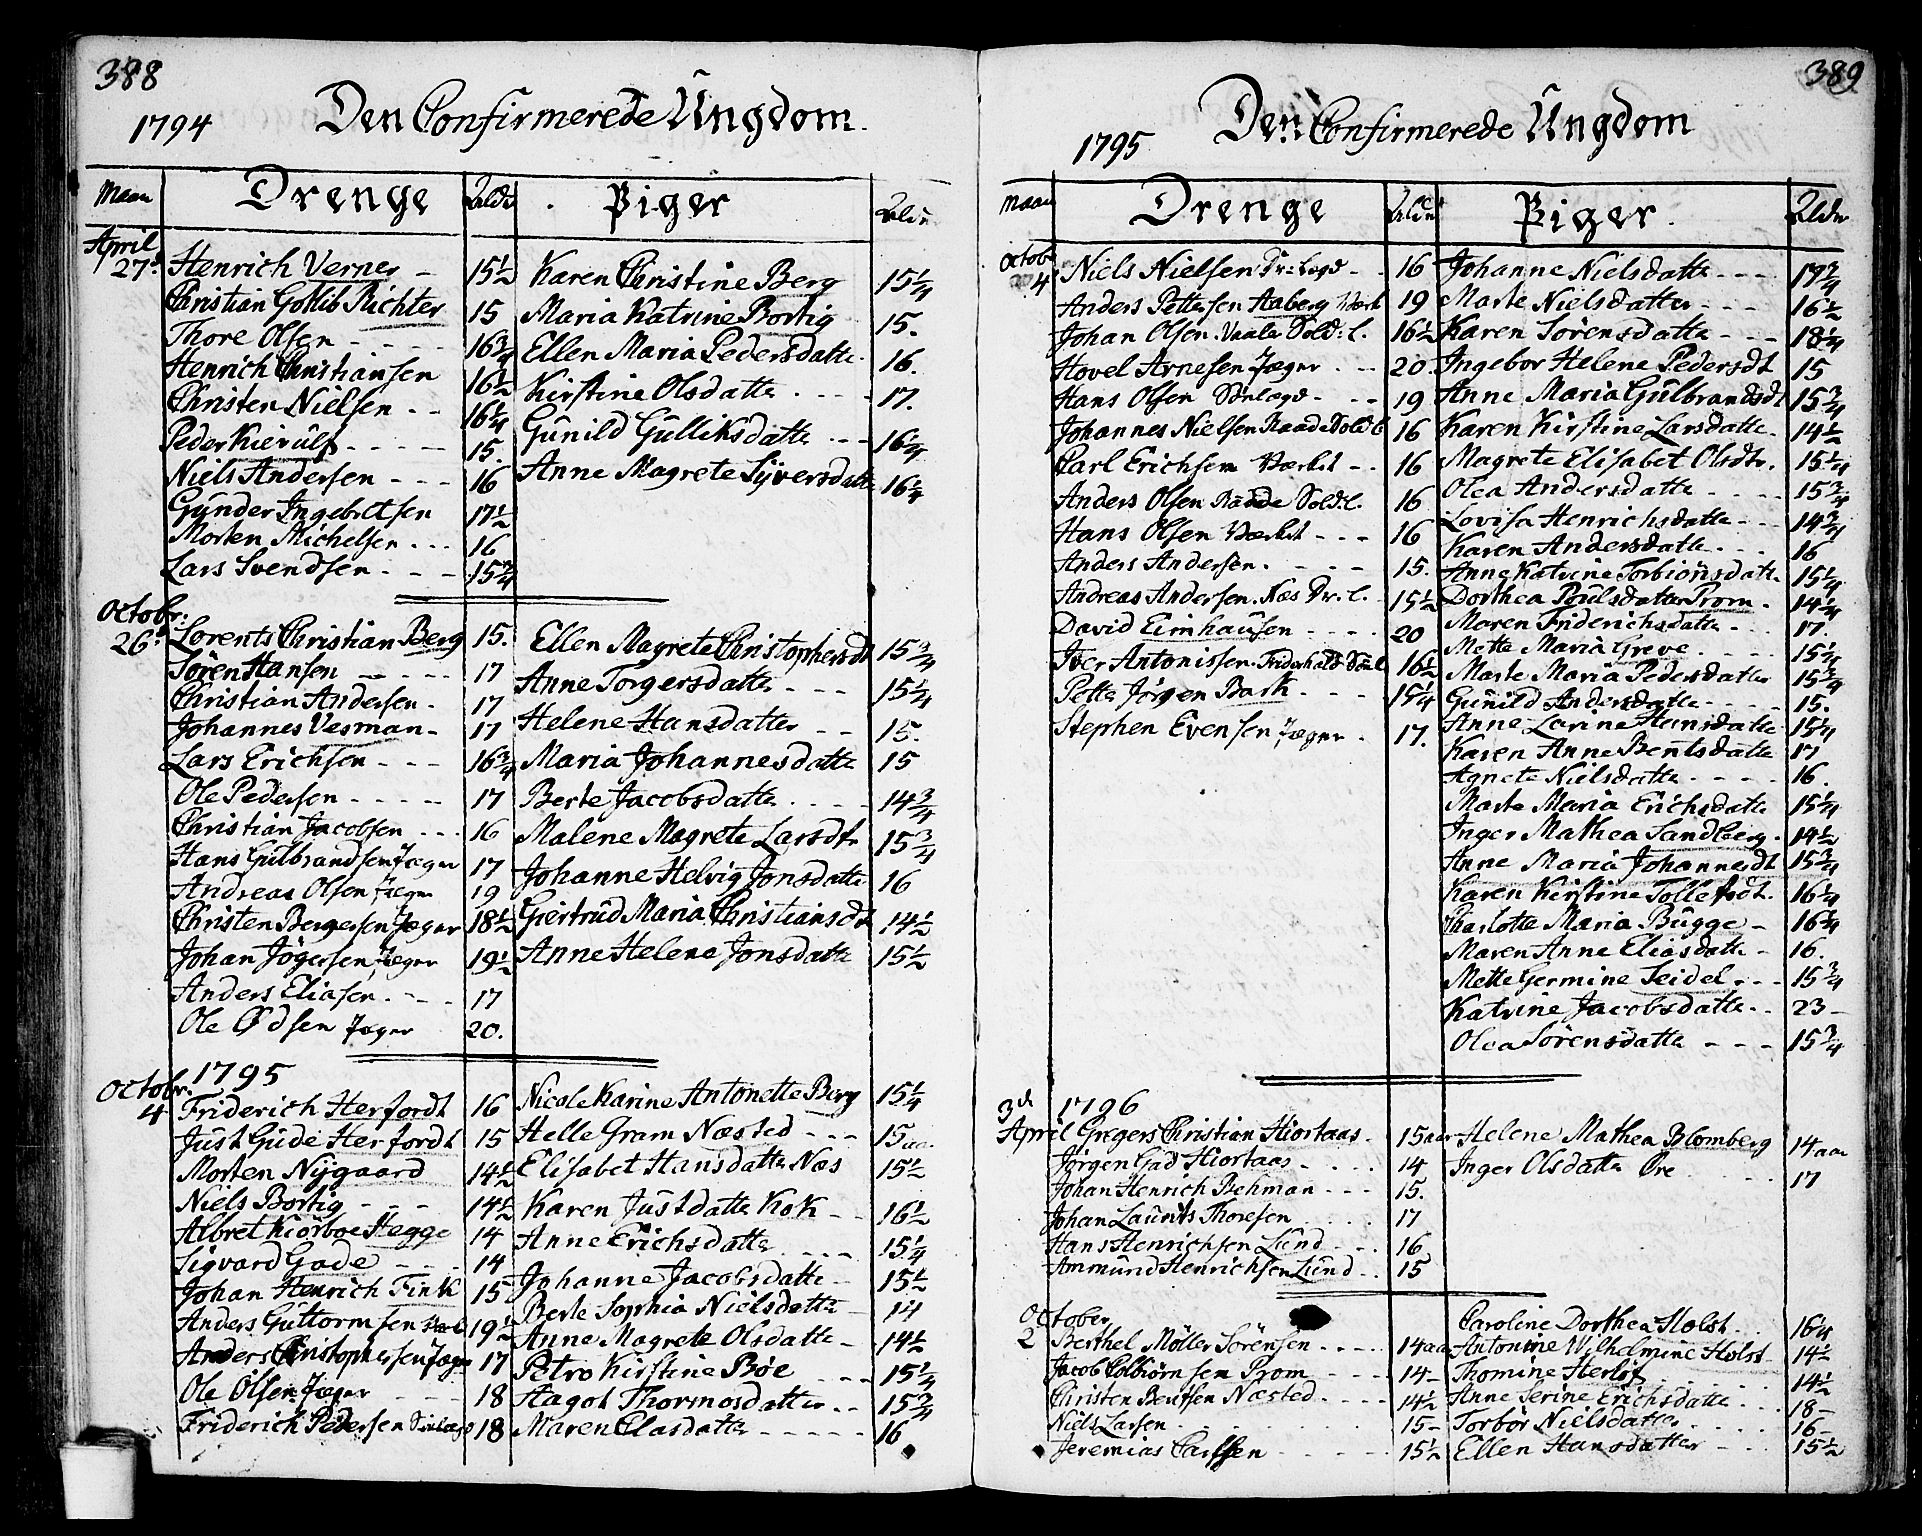 388
1794 Den Confirmerede Ungdom.
Maan Drenge Alder Piger Alder
April
27d Henrich Verner 15½ Karen Christine Berg 15¼
Christian Gotlib Richter 15 Maria Katrine Bortig 15.
Thore Olsen 16¾ Ellen Maria Pedersdatte 16.
Henrich Christiansen 16½ Kirstine Olsdatte 17.
Christen Nielsen 16¼ Gunild Gulliksdatte 16¼
Peder Kierulf 15. Anne Magrete Syversdatte 16¼
Niels Andersen 16
Gunder Ingebretsen 17½
Morten Michelsen 16
Lars Svendsen 15¾
Octobr:
26d Lorents Christian Berg 15. Ellen Magrete Christophersdt 15¾
Sören Hansen 17 Anne Torgersdatte 15¼
Christian Andersen 17 Helene Hansdatter 15.
Johannes Vesman 17 Maria Johannesdatte 15
Lars Erichsen 16¾ Berte Jacobsdatte 14¾
Ole Pedersen 17 Malene Magrete Larsdtr 15¾
Christian Jacobsen 16 Johanne Helvig Jonsdatte 16
Hans Gulbrandsen Jæger 17 Giertrud Maria Christiansdt 14½
Andreas Olsen Jæger 19 Anne Helene Jonsdatte 15½
Christen Bergersen Jæger 18½
Johan Jögersen Jæger 19½
Anders Eliasen 17
Ole Ødsen Jæger 20.
1795
Octobr.
4 Friderich Herfordt 16 Nicole Karine Antonette Berg 15¼
Just Gude Herfordt 15 Helle Gram Næsted 15 aa.
Morten Nygaard 14½ Elisabet Hansdatte Næs 15½
Niels Bortig 14½ Karen Justdatte Kok 16½
Albret Kiörboe Hegge 14 Anne Erichsdatte 15¼
Sigvard Gade 14 Johanne Jacobsdatte 15½
Johan Henrich Fink 15 Berte Sophia Nielsdatte 14
Anders Guttormsen 19½ Anne Magrete Olsdatte 14½
Anders Christophersen Jæger 17 Petro Kirstine Böe 15½
Ole Olsen Jæger 18 Hagot Thormosdatter 15¾
Friderich Pedersen 18 Maren Clasdatte 16
389
1795 Den Confirmerede Ungdom
Maan Drenge Alder Piger Alder
Octobr
4 Niels Nielsen 16 Johanne Nielsdatte 17¾
Anders Pettersen Aaberg Værk 19 Marte Nielsdatter 16½
Johan Olsen Vaale Sold: l. 16½ Karen Sörensdatte 18¼
Hovel Arnesen Jæger 20. Ingebor Helene Pedersdt 15
Hans Olsen 19 Anne Maria Gulbrandsdt 15¾
Johannes Nielsen Raade Sold: l. 16 Karen Kirstine Larsdatte 14½
Carl Erichsen Værket 16 Magrete Elisabet Olsdtr. 15¼
Anders Olsen Raade Sold: l. 16 Olea Andersdatte 15¾
Hans Olsen Værket 16 Lovisa Henrichsdatte 14¾
Anders Andersen 15. Karen Andersdatte 16
Andreas Andersen Næs 15½ Anne Katrine Torbiönsdatte 15½
David Einhausen 20 Dorthea Poulsdatter Prom 14¼
Iver Antonissen Friderhald 16½ Maren Friderichsdatte 17.
Petter Jörgen Bark 15¼ Mette Maria Greve 15½
Stephen Evensen Jæger 17. Marte Maria Pedersdatter 15¾
Gunild Andersdatte 15.
Anne Larine Hansdatte 15¼
Karen Anne Bentsdatte 17
Agnete Nielsdatte 16.
Marte Maria Erichsdatte 15¼
Inger Mathea Sandberg 14½
Anne Maria Johannesdt 15¾
Karen Kirstine Tollefsdt. 16¼
Charlotte Maria Bugge 16¼
Maren Anne Eliasdatte 16.
Mette Germine Seidel 15¾
Katrine Jacobsdatte 23
Olea Sörensdatte 15¾
1796
3d
April Gregers Christian Hiortaas 15 aar Helene Mathea Blomberg 14 aar
Jörgen Gad Hiortaas 14 Inger Olsdatte Øre 17
Johan Henrich Behman 15.
Johan Laurits Thoresen 17
Hans Henrichsen Lund 16
Ammund Henrichsen Lund 15
October
2 Berthel Möller Sörensen 14 aar Caroline Dorthea Holst 16¼
Jacob Colbiörnsen Prom 14 Antonine Wilhelmine Holst 14½
Christen Bentsen Næsted 14½ Thomine Herlöf 14½
Niels Larsen 15 Anne Serine Erichsdatte 18
Jeremias Carlsen 15½ Torbör Nielsdatter 16
Ellen Hansdatter 15½